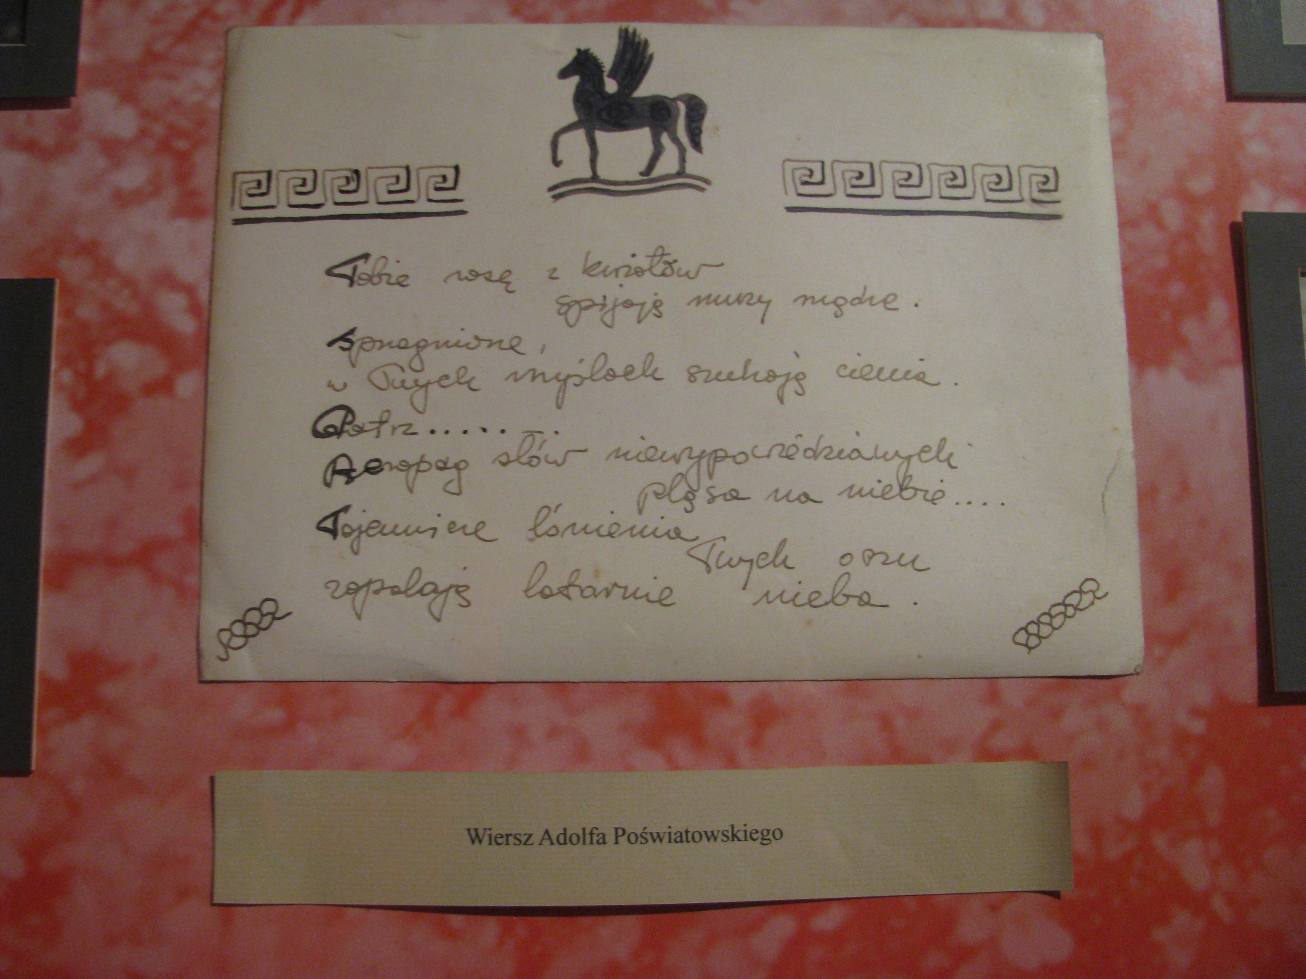 Tobie rosę z kwiatów
spijają muzy mądre.
Spragnione,
w Twych myślach szukają cienia.
Patrz........
Aeropag słów niewypowiedzianych
pląsa na niebie....
Tajemnicze lśnienia
Twych oczu
zapalają latarnie nieba.
Wiersz Adolfa Poświatowskiego